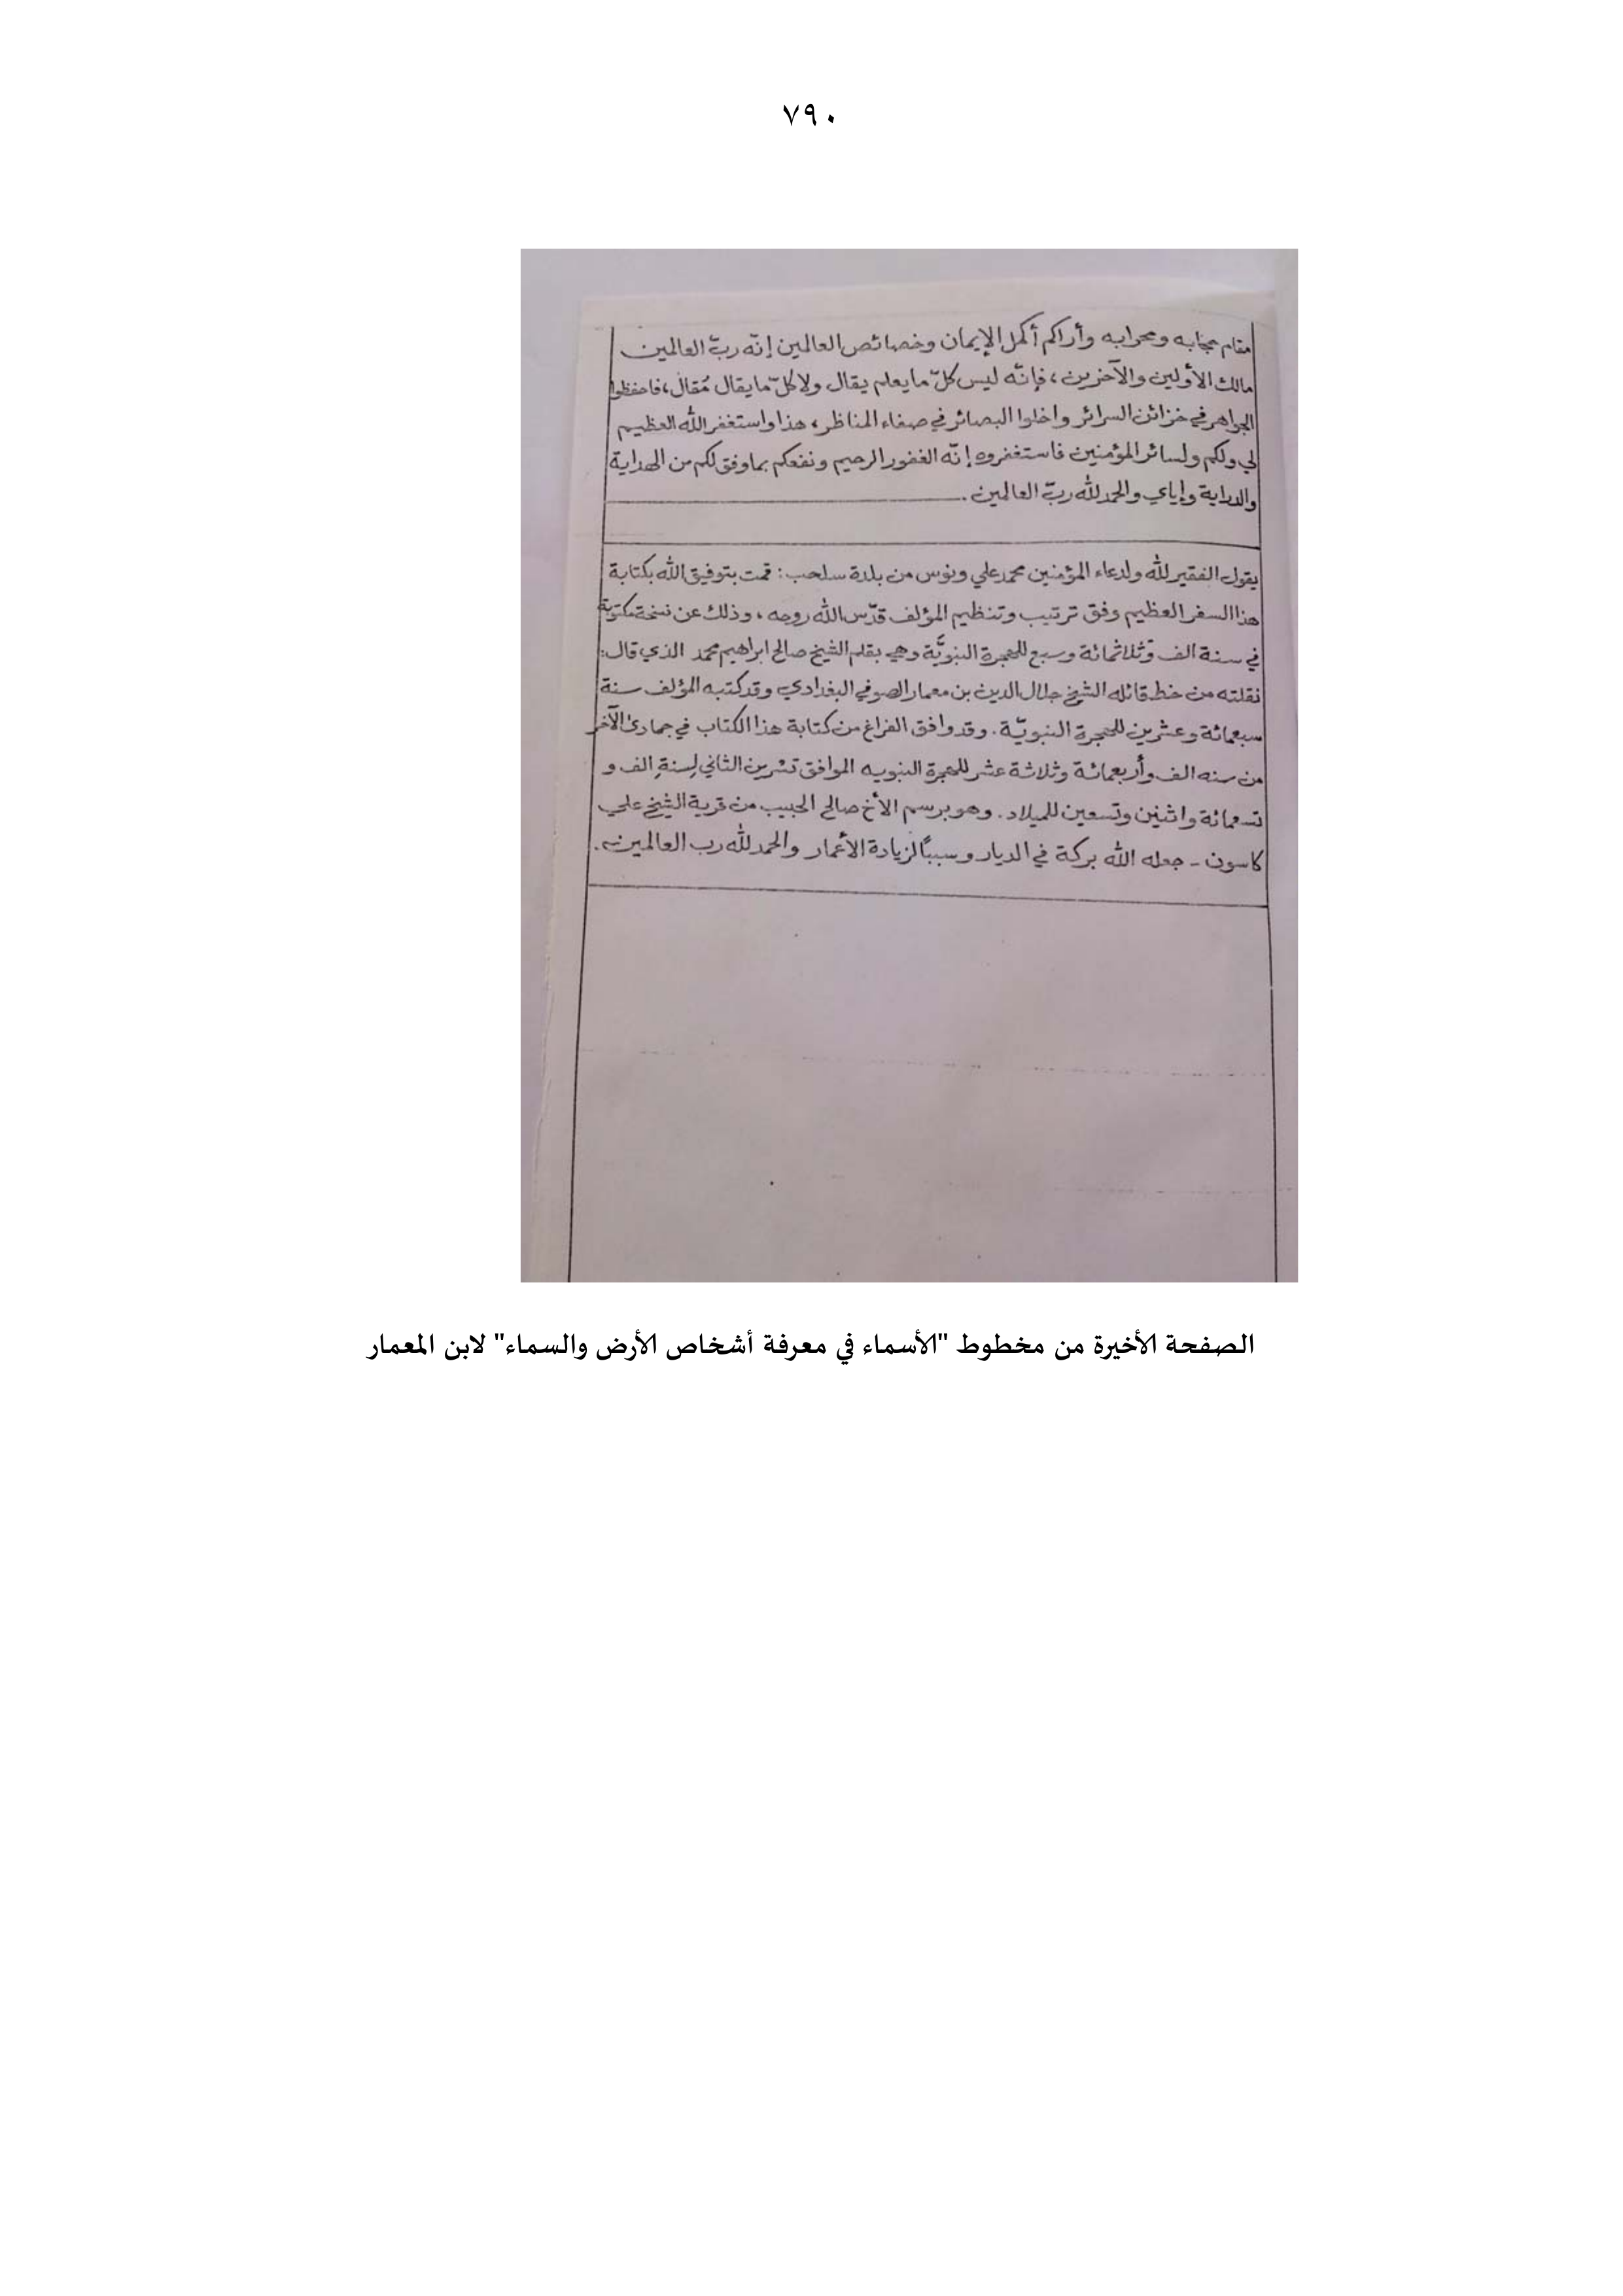 ٧٩٠
مقام حجابه ومحرابه وأراكم أكمل الإيمان وخصائص العالمين إنّه ربّ العالمين
مالك الأولين والآخرين، فإنّه ليس كلّ ما يعلم يقال ولا كلّ ما يقال مُقال، فاحفظوا
الجواهر في خزائن السرائر واخلوا البصائر في صفاء المناظر، هذا واستغفر الله العظيم
لي ولكم ولسائر المؤمنين فاستغفروه إنّه الغفور الرحيم ونفعكم بما وفق لكم من الهداية
والدراية وإياي والحمد لله ربّ العالمين.
يقول الفقير لله ولدعاء المؤمنين محمد علي ونوس من بلدة سلحب: قمت بتوفيق الله بكتابة
هذا السفر العظيم وفق ترتيب وتنظيم المؤلف قدّس الله روحه، وذلك عن نسخة مكتوبة
في سنة الف وثلاثمائة وسبع للهجرة النبويّة وهي بقلم الشيخ صالح ابراهيم محمد الذي قال:
نقلته من خط قائله الشيخ جلال الدين بن معمار الصوفي البغدادي وقد كتبه المؤلف سنة
سبعمائة وعشرين للهجرة النبويّة. وقد وافق الفراغ من كتابة هذا الكتاب في جمادى الآخر
من سنه الف وأربعمائة وثلاثة عشر للهجرة النبويه الموافق تشرين الثاني لسنةِ الف و
تسعمائة واثنين وتسعين للميلاد. وهو برسم الأخ صالح الحبيب من قرية الشيخ علي
كاسون - جعله الله بركة في الديار وسببًا لزيادة الأعمار والحمد لله رب العالمين.
الصفحة الأخيرة من مخطوط "الأسماء في معرفة أشخاص الأرض والسماء" لابن المعمار